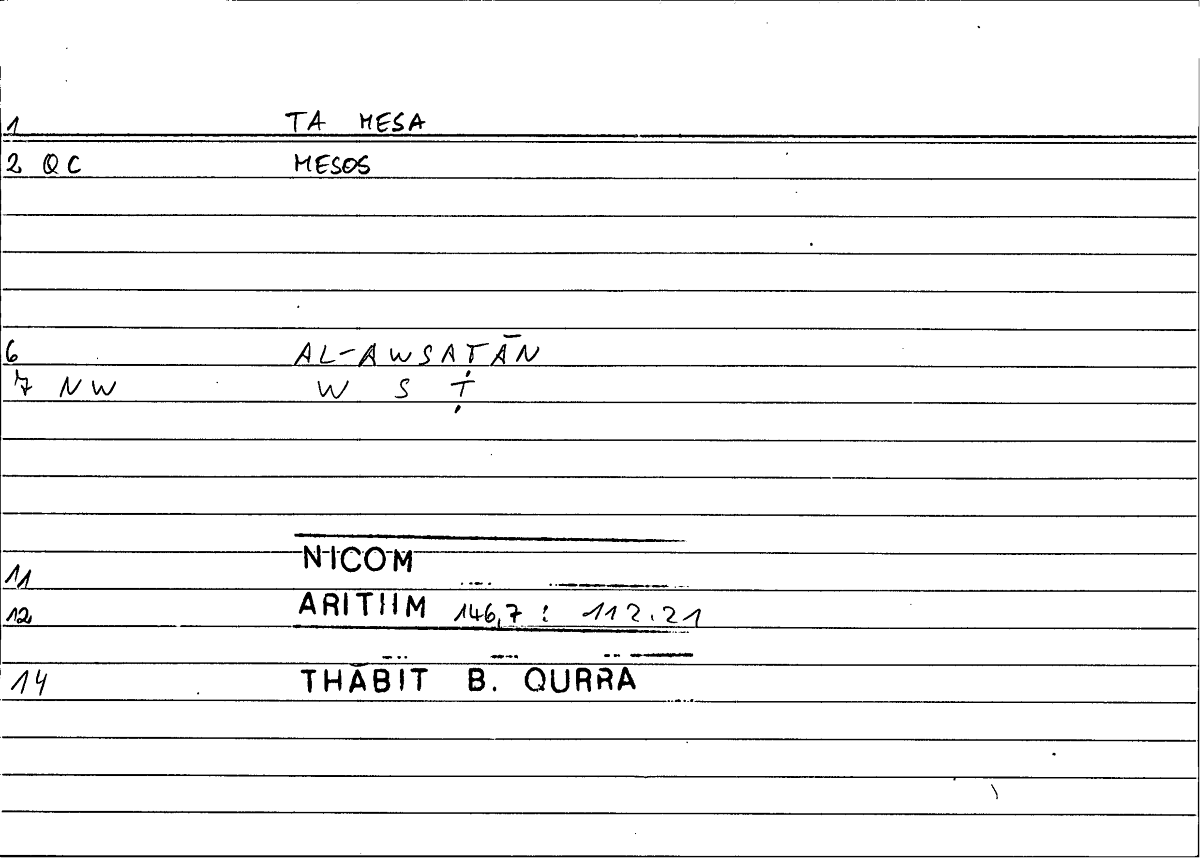 1 TA MESA
2 QC MESOS
6 AL-AWSAṬĀN
7 NW W S Ṭ
11 NICOM
12 ARITHM 146,7 : 112.21
14 THĀBIT B. QURRA